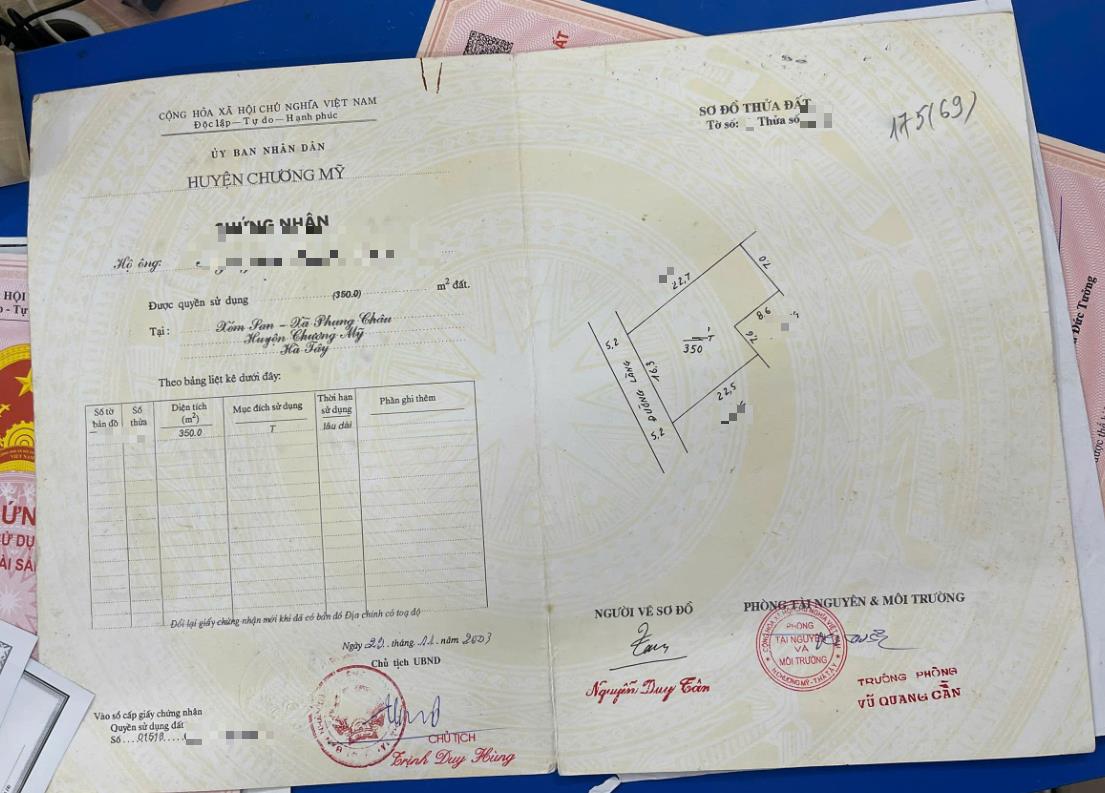 CỘNG HÒA XÃ HỘI CHỦ NGHĨA VIỆT NAM
Độc lập — Tự do — Hạnh phúc
ỦY BAN NHÂN DÂN
HUYỆN CHƯƠNG MỸ
CHỨNG NHẬN
Hộ ông:
Được quyền sử dụng (350.0) m² đất.
Tại: Xóm San - Xã Phụng Châu
Huyện Chương Mỹ
Hà Tây
Theo bảng liệt kê dưới đây:
Số tờ bản đồ Số thửa Diện tích (m²) Mục đích sử dụng Thời hạn sử dụng Phần ghi thêm
350.0 T lâu dài
Đổi lại giấy chứng nhận mới khi đã có bản đồ Địa chính có toạ độ
Ngày 29 tháng 11 năm 2003
Chủ tịch UBND
CHỦ TỊCH
Trịnh Duy Hùng
Vào sổ cấp giấy chứng nhận
Quyền sử dụng đất
Số 01518
SƠ ĐỒ THỬA ĐẤT
Tờ số: Thửa số
175(69)
22,7
70
8.6
76
350 T
16,3
22,5
5,2
ĐƯỜNG LÀNG
5,2
NGƯỜI VẼ SƠ ĐỒ
Nguyễn Duy Tân
PHÒNG TÀI NGUYÊN & MÔI TRƯỜNG
PHÒNG
TÀI NGUYÊN
VÀ
MÔI TRƯỜNG
H.CHƯƠNG MỸ - T.HÀ TÂY
TRƯỞNG PHÒNG
VŨ QUANG CẦN
ẤT
Đức Tưởng
HỘI